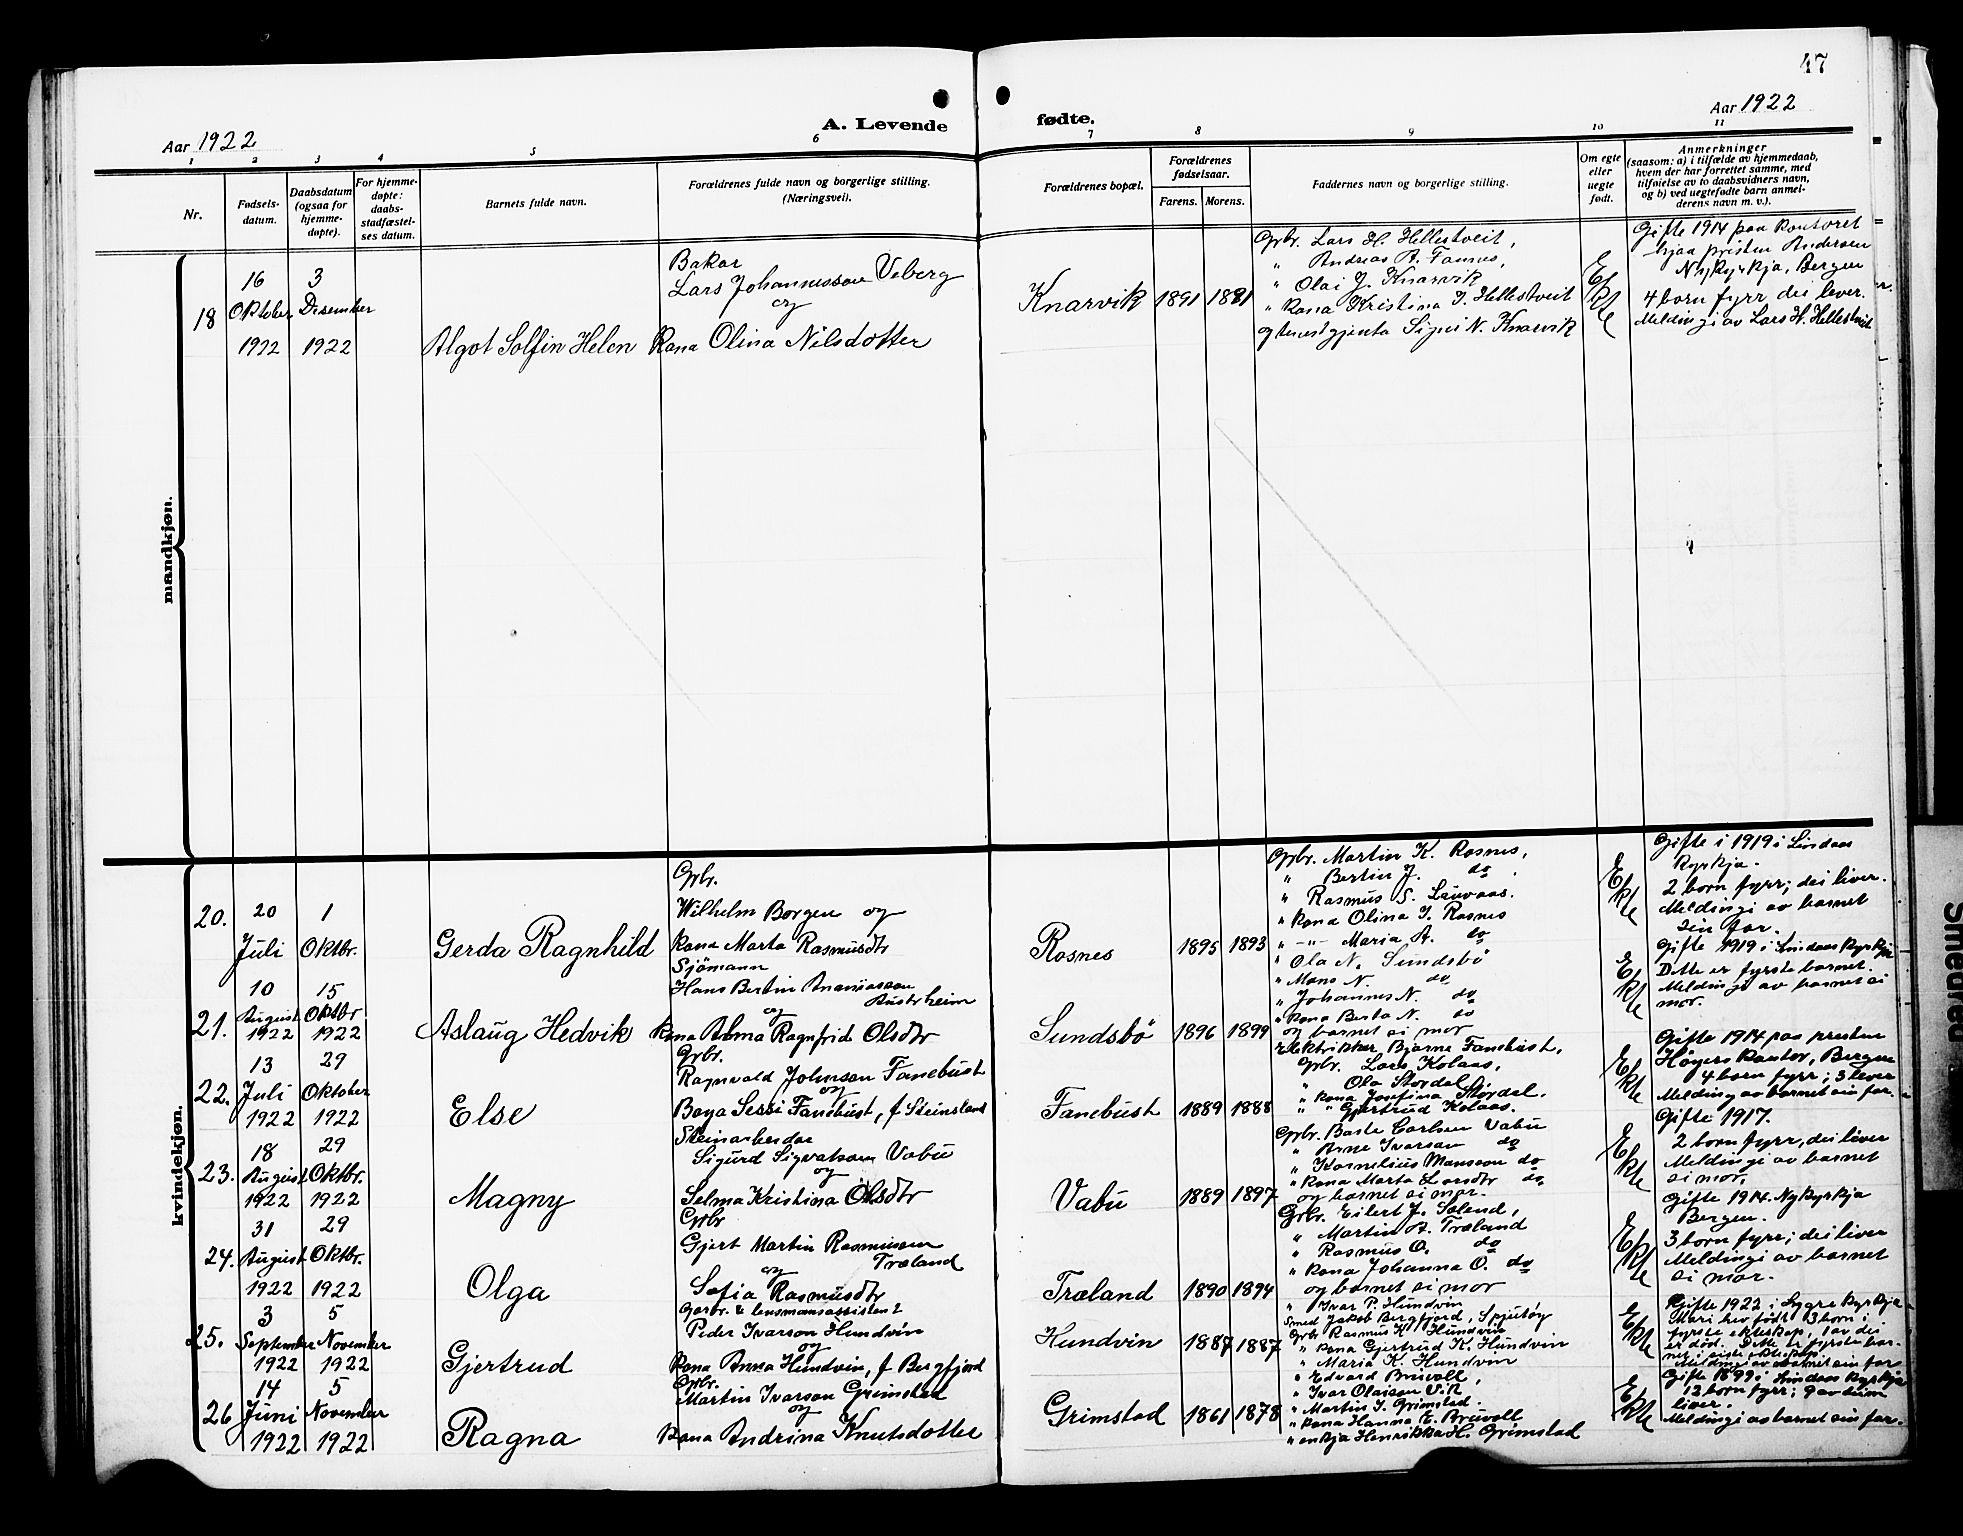 47
Aar 1922
A. Levende
fødte.
Aar 1922
1 2 3 4 5 6 7 8 9 10 11
Nr.
Fødsels-
datum.
Daabsdatum
(ogsaa for
hjemme-
døpte).
For hjemme-
døpte:
daabs-
stadfæstel-
ses datum.
Barnets fulde navn.
Forældrenes fulde navn og borgerlige stilling.
(Næringsvei).
Forældrenes bopæl.
Forældrenes
fødselsaar.
Farens. Morens.
Faddernes navn og borgerlige stilling.
Om egte
eller
uegte
født.
Anmerkninger
(saasom: a) i tilfælde av hjemmedaab,
hvem der har forrettet samme, med
tilføielse av to daabsvidners navn,
og b) ved uegtefødte barn anmel-
derens navn m. v.).
mandkjøn.
18
16
Oktober
1922
3
Disember
1922
Algot Solfin Helen
Bakar
Lars Johannesson Veberg
og
Kona Olina Nilsdotter
Knarvik
1891
1891
Gbr. Lars H. Hellestveit,
" Andreas A. Fannes,
" Olai J. Knarvik
" Kona Kristina J. Hellestveit
og tenestgjenta Signi N. Knarvik
Ekte
Gifte 1914 paa kontoret
hjaa presten Andersen
Nykyrkja, Bergen
4 born fyrr dei lever.
Meldingi av Lars H. Hellestveit
kvindekjøn.
20.
20
Juli
1
Oktbr.
Gerda Ragnhild
Gbr.
Wilhelm Borgen og
Kona Marta Rasmusdtr
Rosnes
1895
1893
Gbr. Martin K. Rosnes,
" Bertin J. do
" Rasmus S. Lauvaas.
" Kona Olina I. Rosnes
" -"- Maria A. do
Ekte
Gifte i 1919 i Lindaas
Kyrkja.
2 born fyrr; dei liver.
Meldingi av barnet
sin far.
21.
10
August
1922
15
Oktbr
1922
Aslaug Hedvik
Sjömann
Hans Bertin Ananiasson
Austrheim
og
Kona Alma Ragnfrid Olsdtr
Sundsbö
1896
1899
" Ola N. Sundsbö
" Mons N. do
" Johannes N. do
" Kona Berta N. do
og barnet si mor
Ekte
Gifte 1919 i Lindaas Kyrkja
Dette er fyrste barnet.
Meldingi av barnet si
mor.
22.
13
Juli
1922
29
Oktober
1922
Else
Gbr.
Ragnvald Johnson Fanebust
og
Fanebust, f Steinsland
Fanebust
1889
1888
Elektriker Bjarne Fanebust,
Gbr. Lars Kolaas,
" Ola Stordal,
" Kona Josefina Stordal.
" " Gjertrud Kolaas.
Ekte
Gifte 1914 paa presten
Höyers kontor, Bergen
4 born fyrr; 3 lever
Melding av barnet sin far.
23.
18
August
1922
29
Oktbr.
1922
Magny
Steinarbeidar
Sigurd Sigvatson Vabu
og
Selma Kristina Olsdtr
Vabu
1889
1897
Gbr. Baste Carlsen Vabu
" Arne Ivarson do
" Kornelius Monsson do
" Kona Marta Larsdtr do
og barnet si mor.
Ekte
Gifte 1917.
2 born fyrr, dei liver
Meldingi av barnet
si mor.
24.
31
August
1922
29
Oktbr.
1922
Olga
Gbr
Gjert Martin Rasmusson
Træland
og
Sofia Rasmusdtr
Træland
1890
1894
Gbr. Eilert J. Soland,
" Martin A. Træland
" Rasmus O. do
" Kona Johanna O. do
og barnet si mor
Ekte
Gifte 1914. Nykyrkja
Bergen.
3 born fyrr; dei liver
Meldingi av barnet
si mor.
25.
3
September
1922
5
November
1922
Gjertrud
Garbr. & lensmansassistent
Peder Ivarson Hundvin
og
Kona Anna Hundvin, f Bergfjord
Hundvin
1887
1887
" Ivar P. Hundvin
Smed Jakob Bergfjord,
Gbr Rasmus K. Hundvin
" Kona Gjertrud K. Hundvin
" Maria K. Hundvin
Ekte
Gifte 1922 i Sygre Kyrkja
Mari hev født 3 born i
fyrste ekteskap, 1 av dei
er död. Dette er fyrste bar-
net i siste ekteskap.
Meldingi av barnet sin far
26
14
Juni
1922
5
November
1922
Ragna
Gbr.
Martin Ivarson Grimstad
og
Kona Andrina Knutsdotter
Grimstad
1861
1878
" Edvard Bruvoll,
" Ivar Olaison Vik
" Martin I. Grimstad.
" Kona Hanna E. Bruvoll
" enkja Henrikka H. Grimstad
Ekte
Gifte 1899 i Lindaas Kyrkja
12 born fyrr; 9 av deim
liver.
Meldingi av barnet sin far.